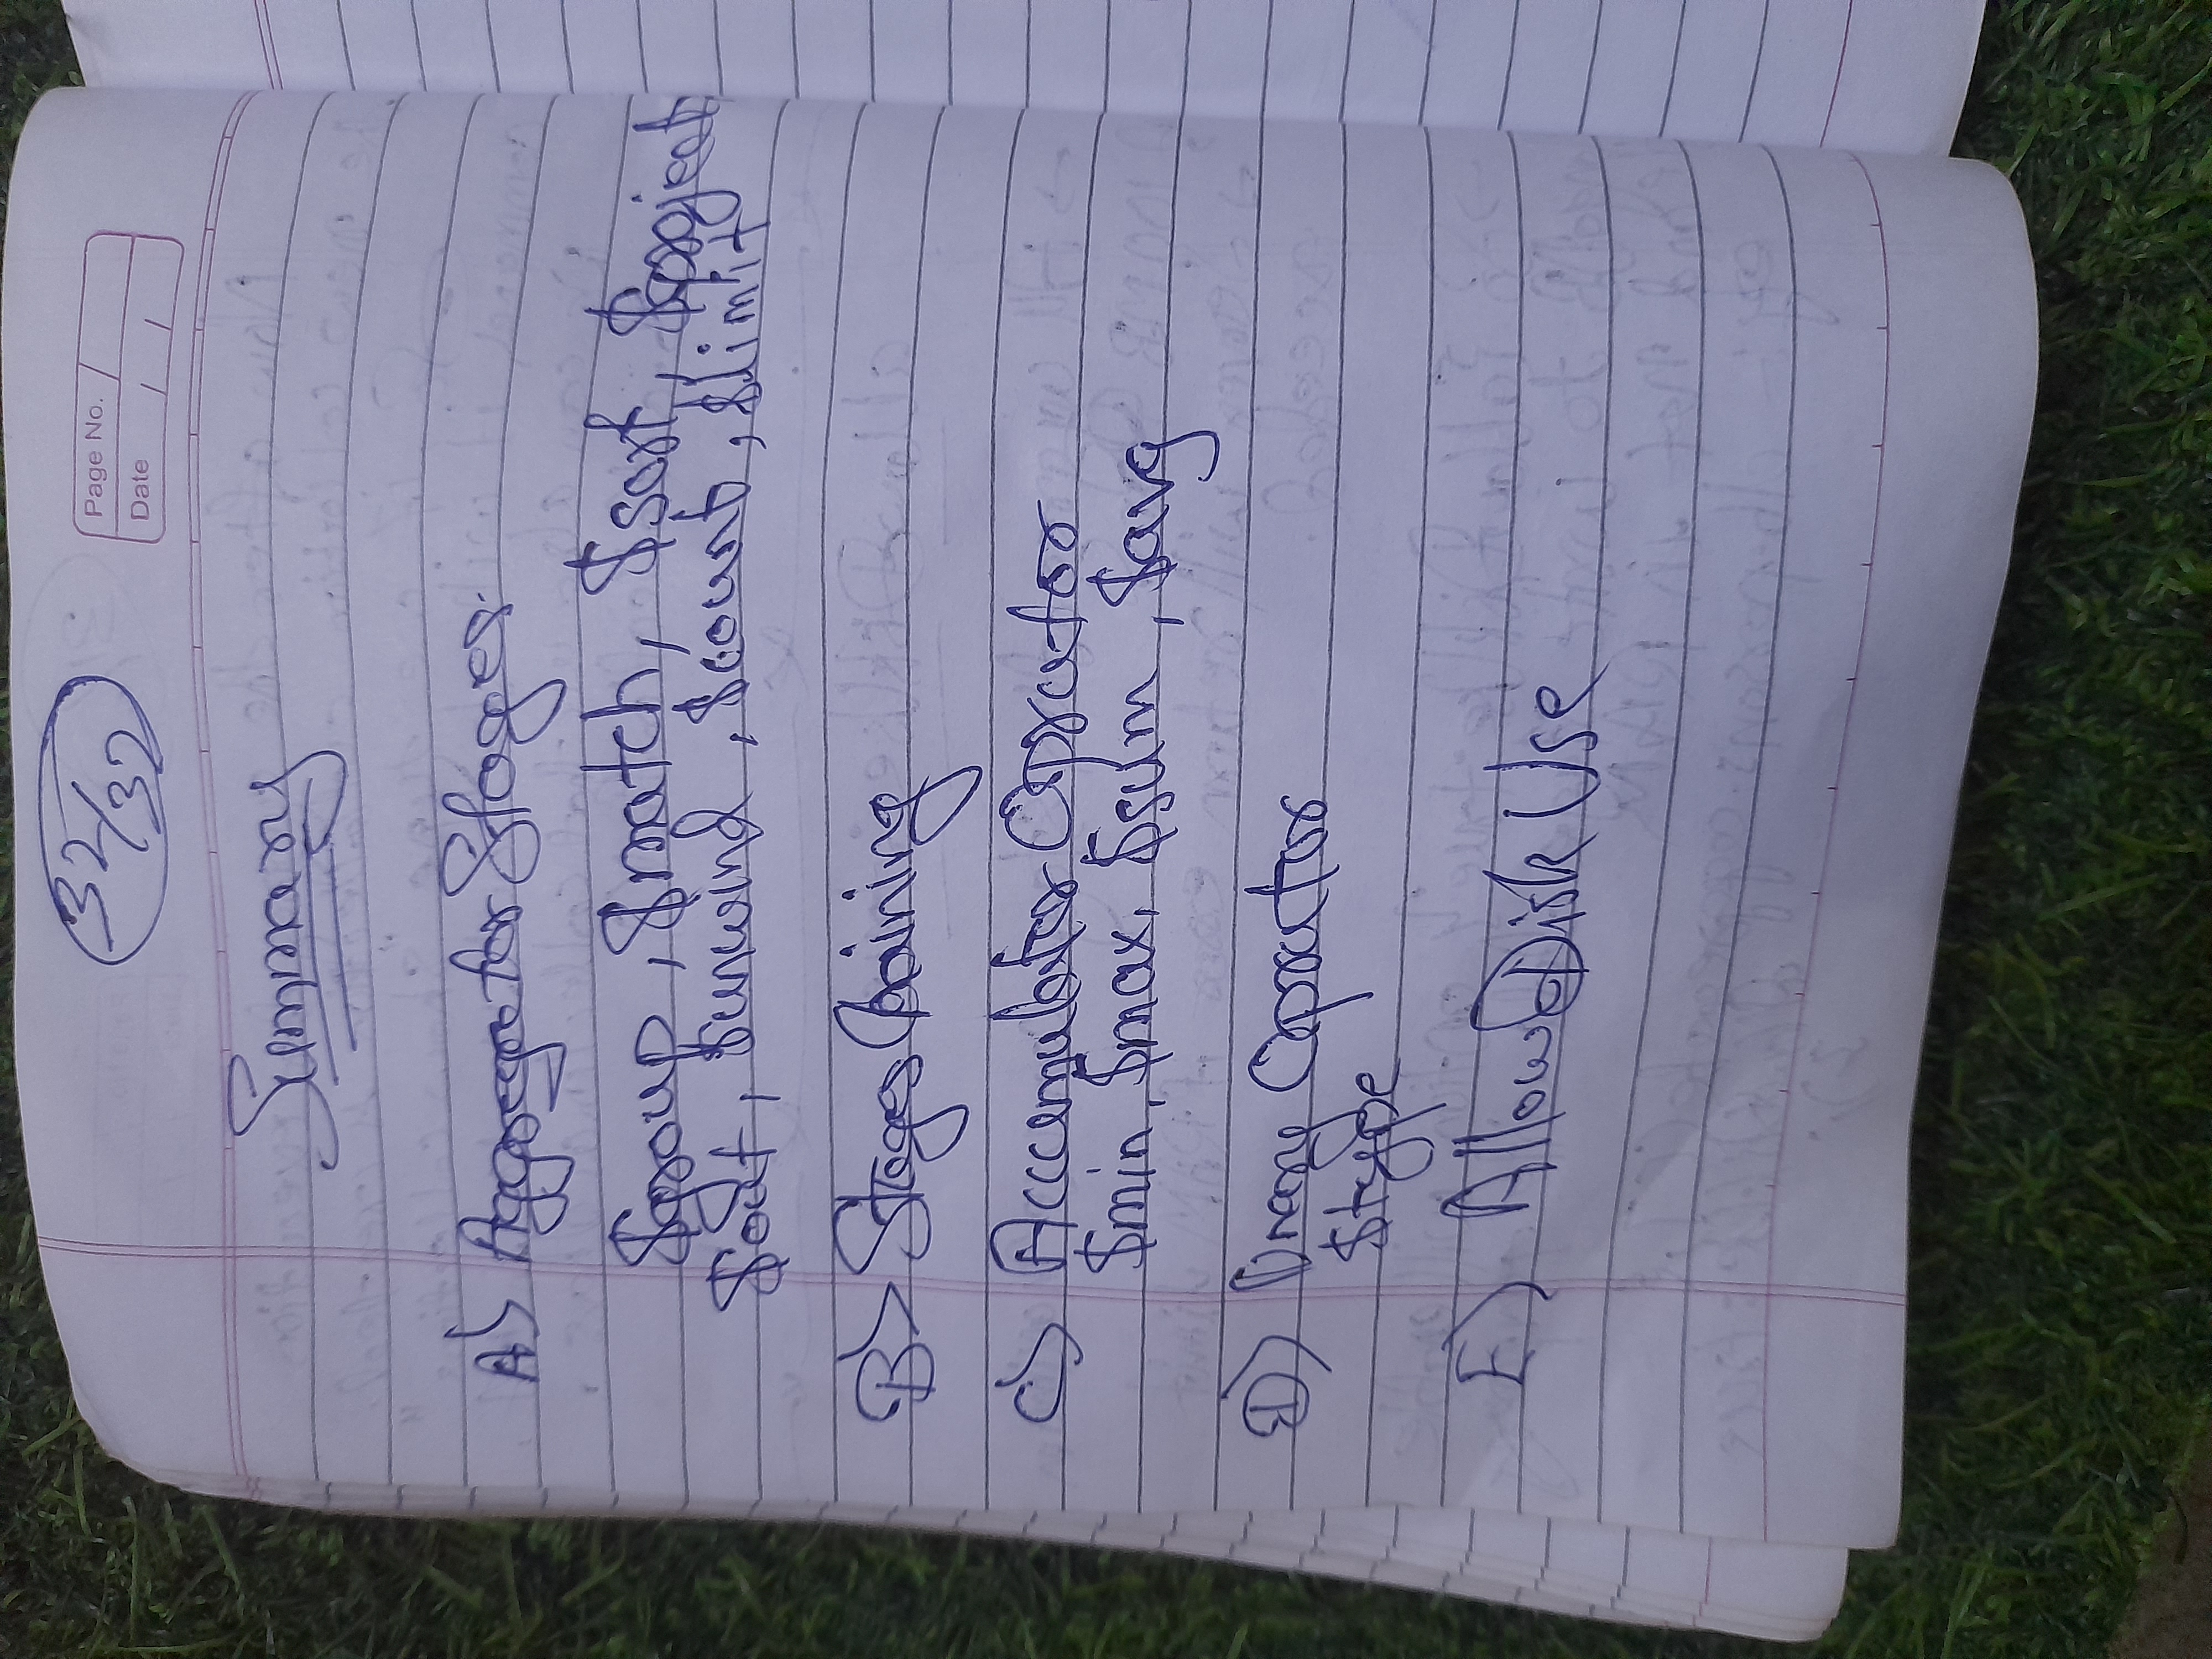 32/32
Page No.
Date / /
Summary
A) Aggregator Stages
$group, $match, $sort, $project
$out, $unwind, $count, $limit
B> Stages Chaining
C) Acccumulator Oprator
$min, $max, $sum, $avg
D) Unary Oprator
$type
E) Allow Disk Use